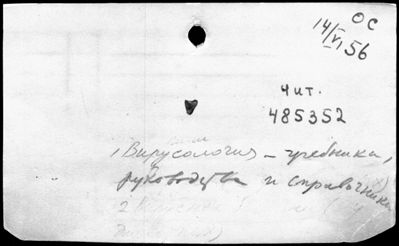 ОС
14/VI 56
Чит.
485352
1 Вирусология – учебники,
руководства и справочники
2